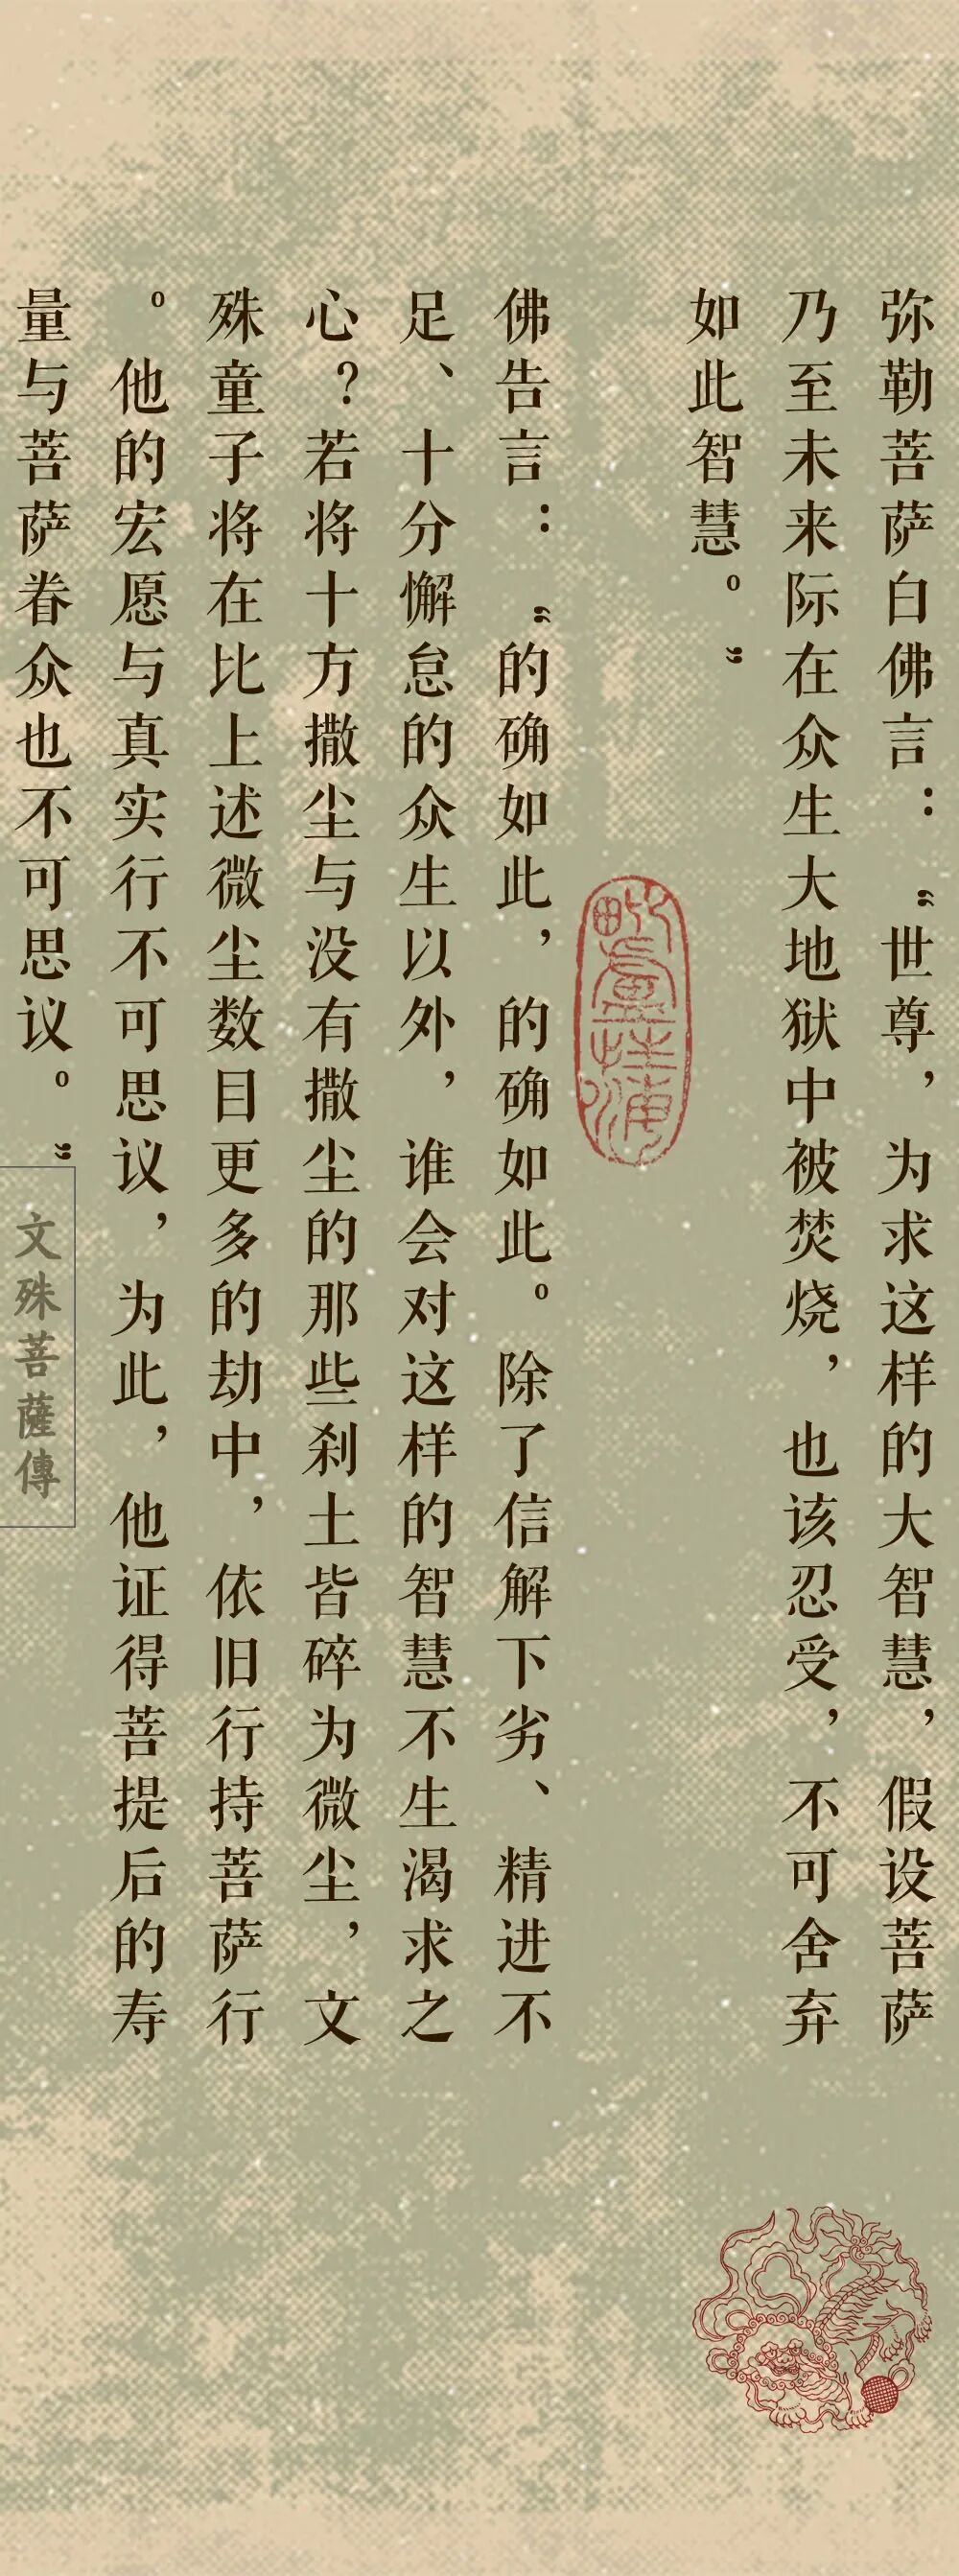 弥勒菩萨白佛言：“世尊，为求这样的大智慧，假设菩萨
乃至未来际在众生大地狱中被焚烧，也该忍受，不可舍弃
如此智慧。”
佛告言：“的确如此，的确如此。除了信解下劣、精进不
足、十分懈怠的众生以外，谁会对这样的智慧不生渴求之
心？若将十方撒尘与没有撒尘的那些刹土皆碎为微尘，文
殊童子将在比上述微尘数目更多的劫中，依旧行持菩萨行
。他的宏愿与真实行不可思议，为此，他证得菩提后的寿
量与菩萨眷众也不可思议。”
文殊菩薩傳